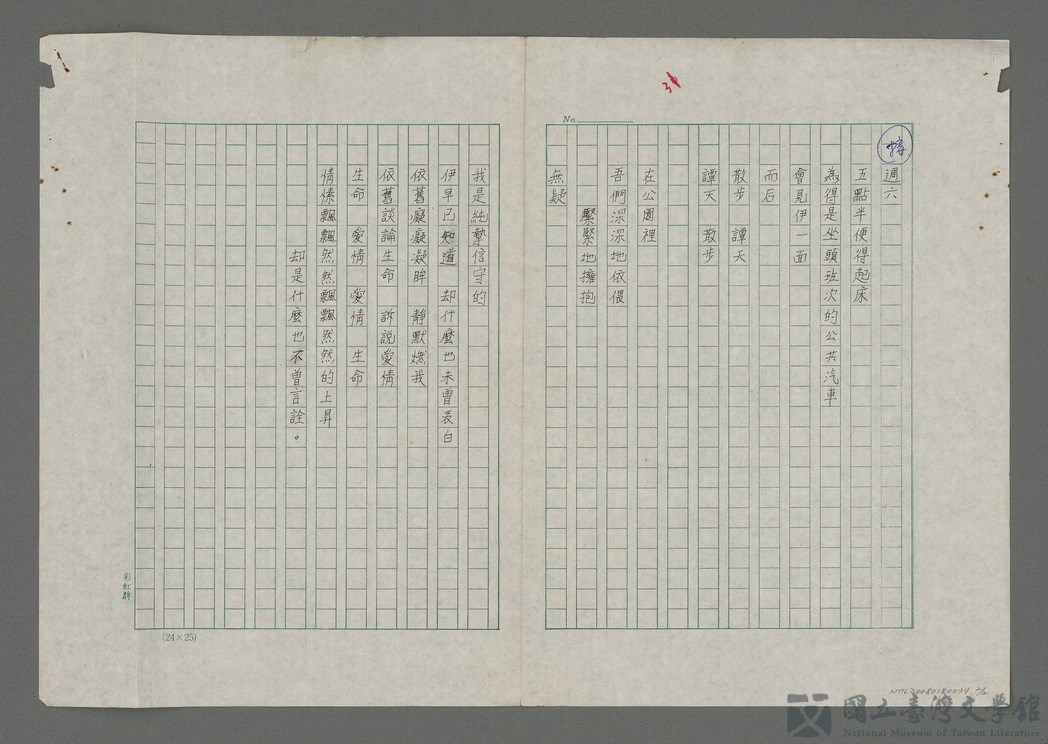 No.
週六
五點半便得起床
為得是坐頭班次的公共汽車
會見伊一面
而后
散步 譚天
譚天 散步
在公園裡
吾們深深地依偎
緊緊地擁抱
無疑
我是純摯信守的
伊早已知道 却什麼也未曾表白
依舊癡癡凝眸 靜默燃我
依舊談論生命 訴說愛情
生命 愛情 愛情 生命
情愫飄飄然然飄飄然然的上昇
却是什麼也不曾言詮。
彩虹牌
(24×25)
國立臺灣文學館
National Museum of Taiwan Literature